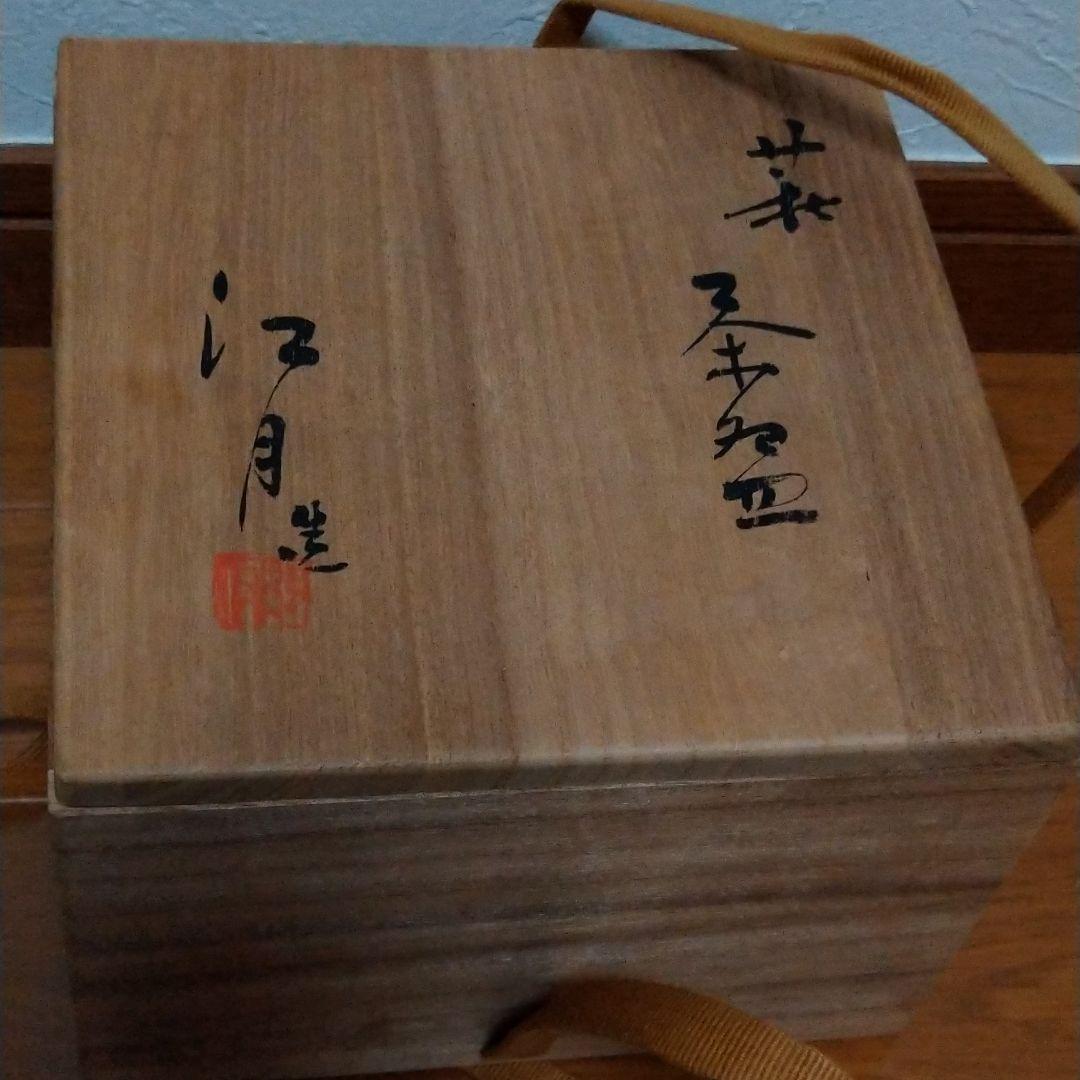 萩
茶盌
江月造